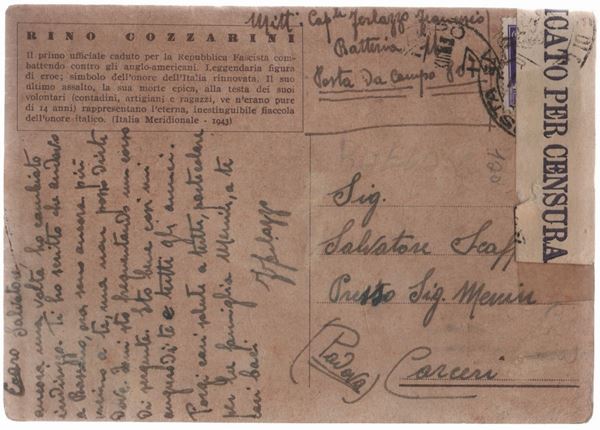 RINO COZZARINI
Il primo ufficiale caduto per la Repubblica Fascista com-
battendo contro gli anglo-americani. Leggendaria figura
di eroe; simbolo dell'onore dell'Italia rinnovata. Il suo
ultimo assalto, la sua morte epica, alla testa dei suoi
volontari (contadini, artigiani e ragazzi, ve n'erano pure
di 14 anni) rappresentano l'eterna, inestinguibile fiaccola
dell'onore italico. (Italia Meridionale - 1943)
Mitt: Cap.le Francesco
Batteria
Posta Da Campo
ICATO PER CENSURA
100
Sig.
Salvatore
Presso Sig. Menin
Carceri
(Padova)
Caro Salvatore
ancora una volta ho cambiato
indirizzo. Ti ho scritto che andavo
a ora sono ancora più
vicino a te, ma non posso dirti
dove. Qui sto frequentando un corso
di Sto bene così mi
auguro di te e tutti gli amici.
Porgi cari saluti a tutti, particolare
per la famiglia Menin, a te
cari baci